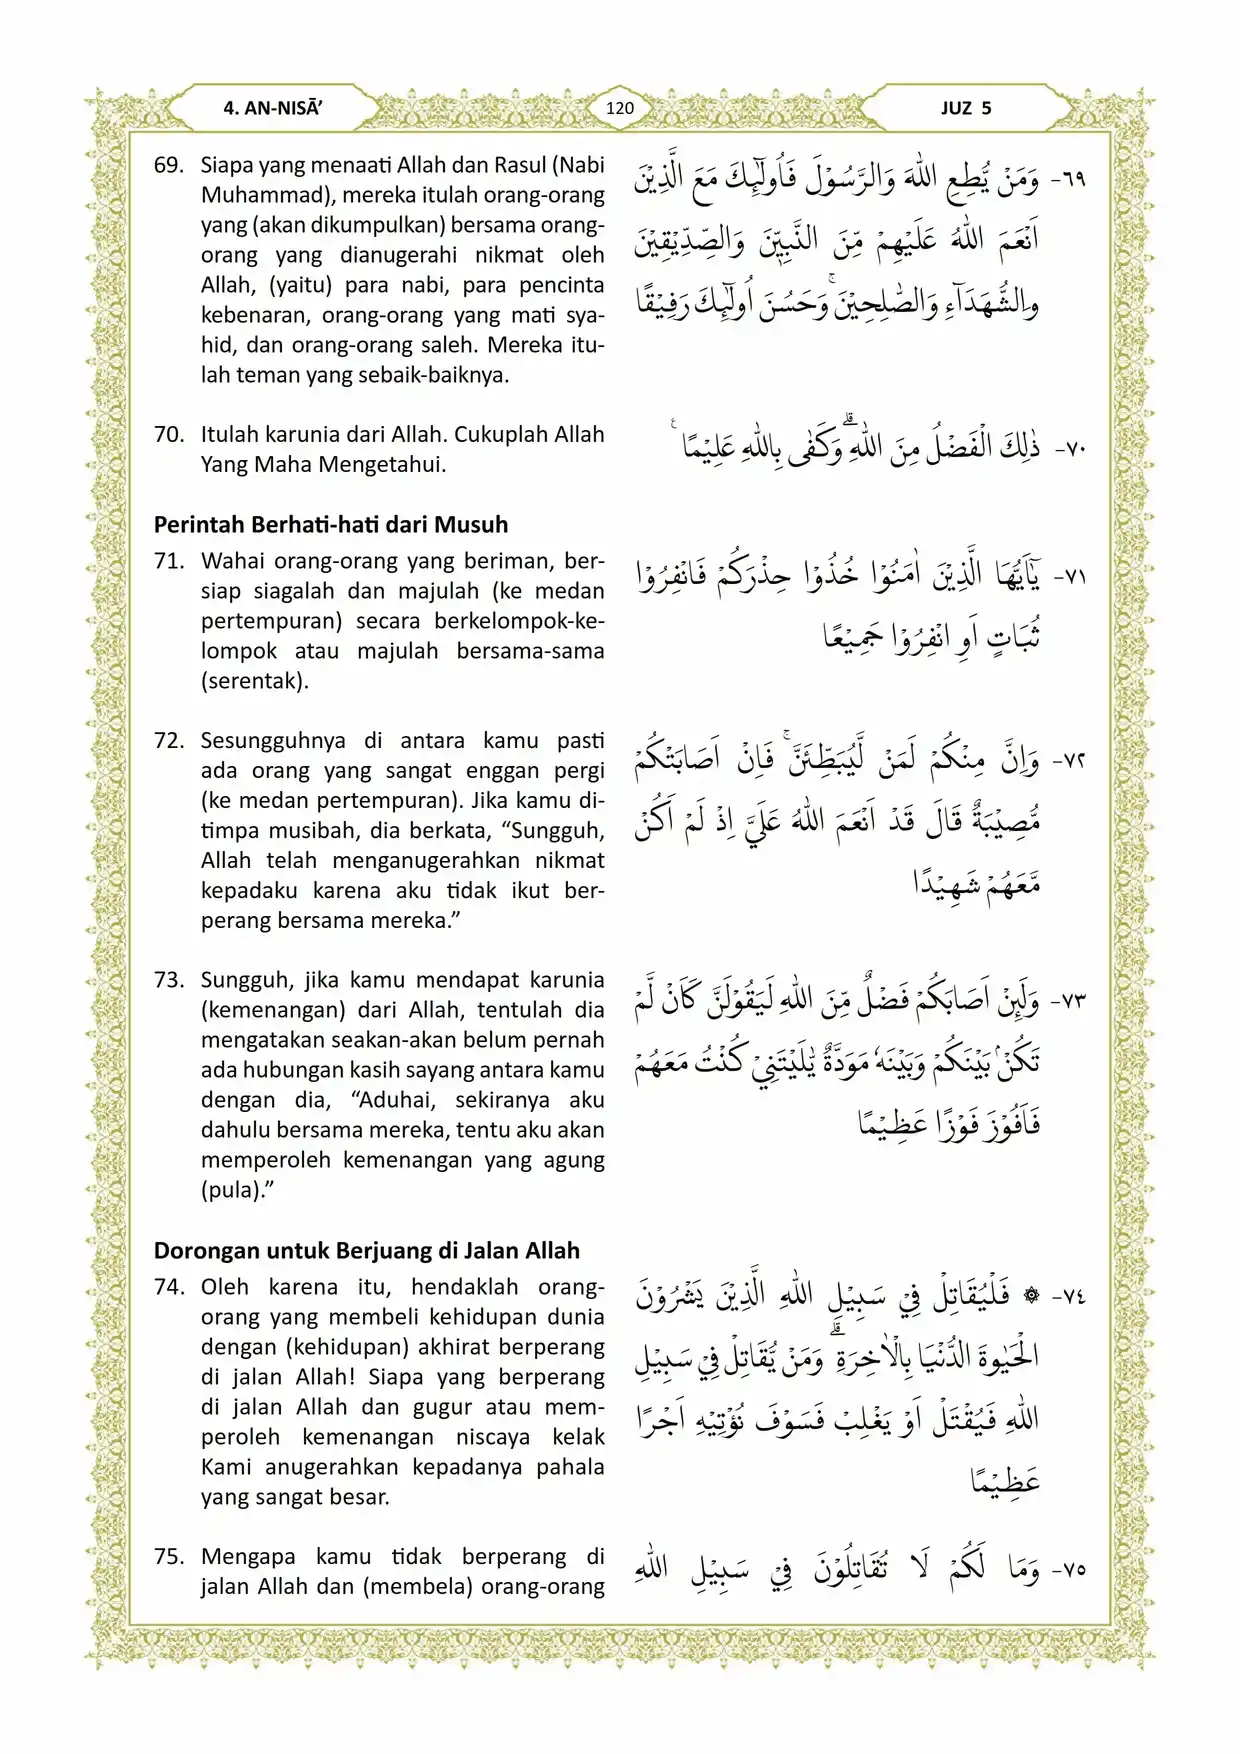 4. AN-NISĀ’
120
JUZ 5
69. Siapa yang menaati Allah dan Rasul (Nabi
Muhammad), mereka itulah orang-orang
yang (akan dikumpulkan) bersama orang-
orang yang dianugerahi nikmat oleh
Allah, (yaitu) para nabi, para pencinta
kebenaran, orang-orang yang mati sya-
hid, dan orang-orang saleh. Mereka itu-
lah teman yang sebaik-baiknya.
٦٩- وَمَنْ يُّطِعِ اللّٰهَ وَالرَّسُوْلَ فَاُولٰۤىِٕكَ مَعَ الَّذِيْنَ
اَنْعَمَ اللّٰهُ عَلَيْهِمْ مِّنَ النَّبِيّٖنَ وَالصِّدِّيْقِيْنَ
وَالشُّهَدَاۤءِ وَالصّٰلِحِيْنَ ۚ وَحَسُنَ اُولٰۤىِٕكَ رَفِيْقًا
70. Itulah karunia dari Allah. Cukuplah Allah
Yang Maha Mengetahui.
٧٠- ذٰلِكَ الْفَضْلُ مِنَ اللّٰهِ ۗوَكَفٰى بِاللّٰهِ عَلِيْمًا ࣖ
Perintah Berhati-hati dari Musuh
71. Wahai orang-orang yang beriman, ber-
siap siagalah dan majulah (ke medan
pertempuran) secara berkelompok-ke-
lompok atau majulah bersama-sama
(serentak).
٧١- يٰٓاَيُّهَا الَّذِيْنَ اٰمَنُوْا خُذُوْا حِذْرَكُمْ فَانْفِرُوْا
ثُبَاتٍ اَوِ انْفِرُوْا جَمِيْعًا
72. Sesungguhnya di antara kamu pasti
ada orang yang sangat enggan pergi
(ke medan pertempuran). Jika kamu di-
timpa musibah, dia berkata, “Sungguh,
Allah telah menganugerahkan nikmat
kepadaku karena aku tidak ikut ber-
perang bersama mereka.”
٧٢- وَاِنَّ مِنْكُمْ لَمَنْ لَّيُبَطِّئَنَّ ۚ فَاِنْ اَصَابَتْكُمْ
مُّصِيْبَةٌ قَالَ قَدْ اَنْعَمَ اللّٰهُ عَلَيَّ اِذْ لَمْ اَكُنْ
مَّعَهُمْ شَهِيْدًا
73. Sungguh, jika kamu mendapat karunia
(kemenangan) dari Allah, tentulah dia
mengatakan seakan-akan belum pernah
ada hubungan kasih sayang antara kamu
dengan dia, “Aduhai, sekiranya aku
dahulu bersama mereka, tentu aku akan
memperoleh kemenangan yang agung
(pula).”
٧٣- وَلَىِٕنْ اَصَابَكُمْ فَضْلٌ مِّنَ اللّٰهِ لَيَقُوْلَنَّ كَاَنْ لَّمْ
تَكُنْۢ بَيْنَكُمْ وَبَيْنَهٗ مَوَدَّةٌ يّٰلَيْتَنِيْ كُنْتُ مَعَهُمْ
فَاَفُوْزَ فَوْزًا عَظِيْمًا
Dorongan untuk Berjuang di Jalan Allah
74. Oleh karena itu, hendaklah orang-
orang yang membeli kehidupan dunia
dengan (kehidupan) akhirat berperang
di jalan Allah! Siapa yang berperang
di jalan Allah dan gugur atau mem-
peroleh kemenangan niscaya kelak
Kami anugerahkan kepadanya pahala
yang sangat besar.
٧٤- ۞ فَلْيُقَاتِلْ فِيْ سَبِيْلِ اللّٰهِ الَّذِيْنَ يَشْرُوْنَ
الْحَيٰوةَ الدُّنْيَا بِالْاٰخِرَةِ ۗ وَمَنْ يُّقَاتِلْ فِيْ سَبِيْلِ
اللّٰهِ فَيُقْتَلْ اَوْ يَغْلِبْ فَسَوْفَ نُؤْتِيْهِ اَجْرًا
عَظِيْمًا
75. Mengapa kamu tidak berperang di
jalan Allah dan (membela) orang-orang
٧٥- وَمَا لَكُمْ لَا تُقَاتِلُوْنَ فِيْ سَبِيْلِ اللّٰهِ